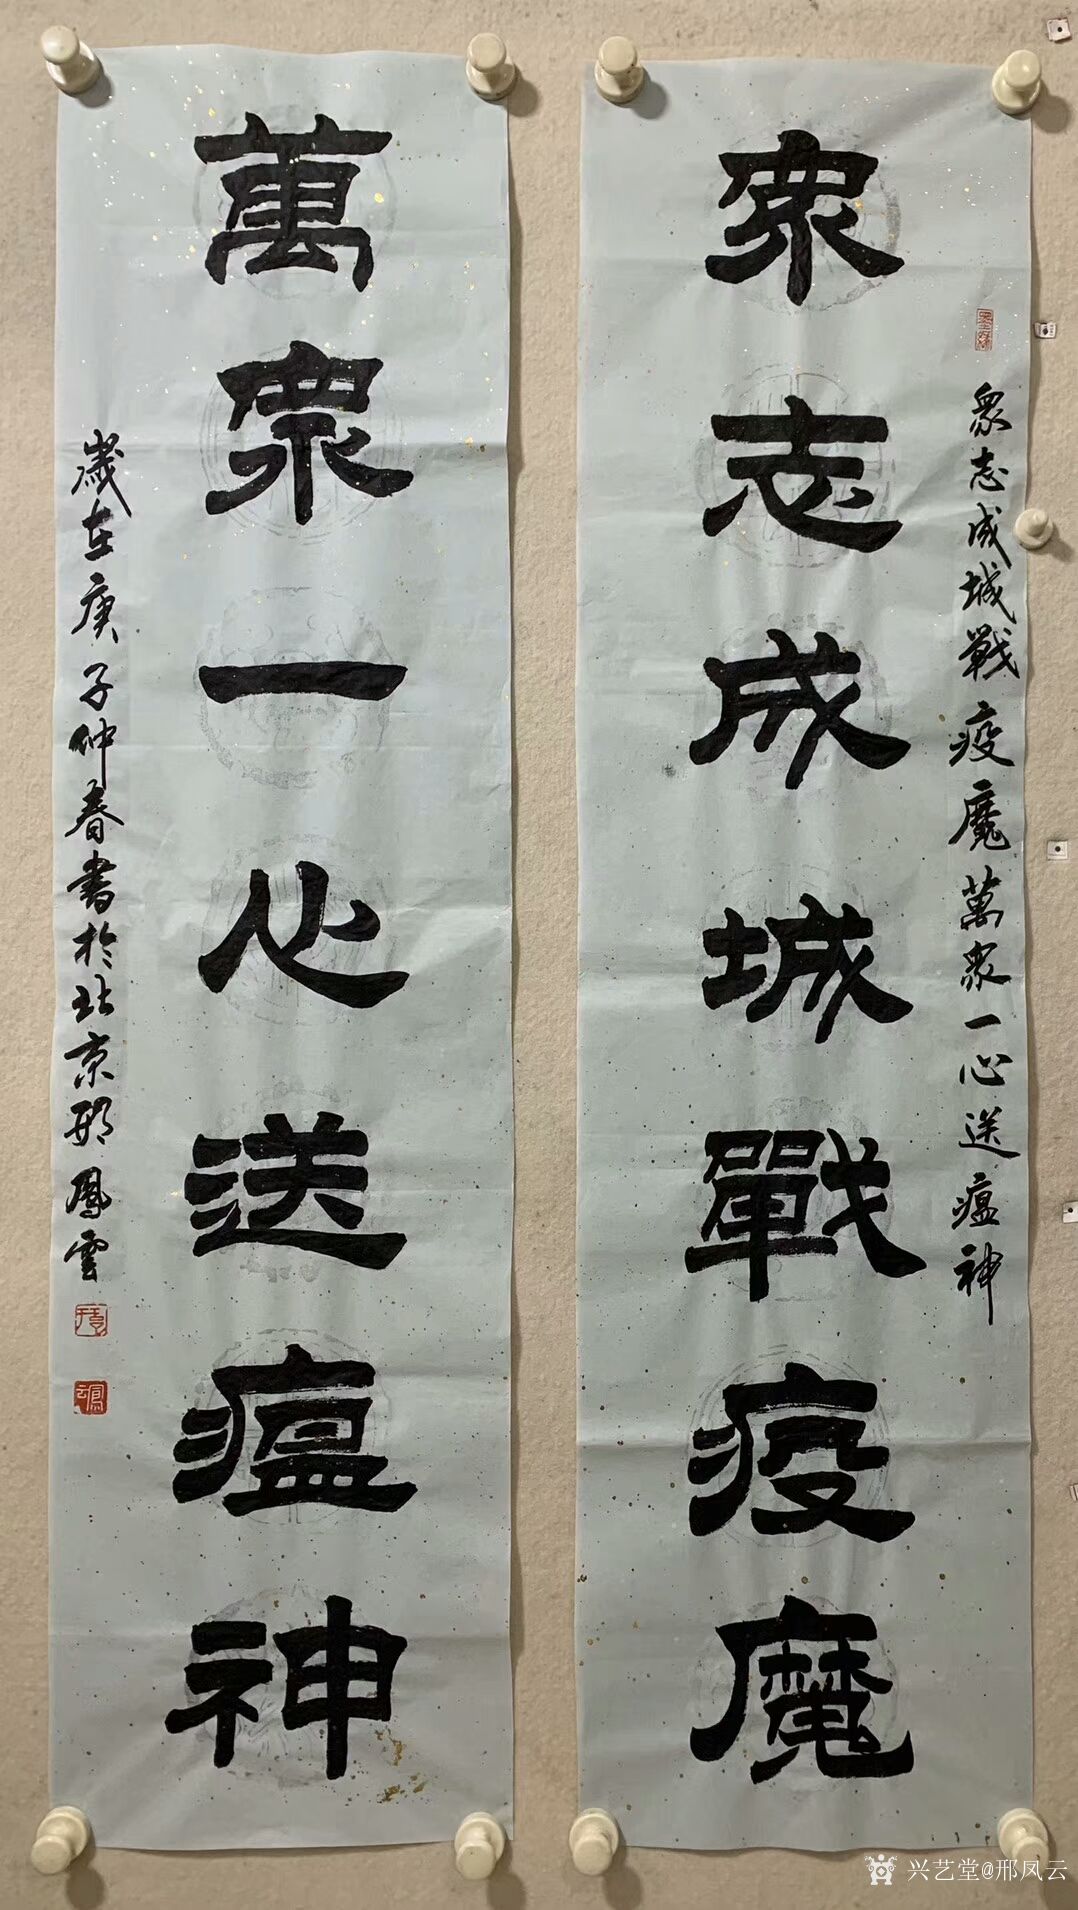 衆志成城戰疫魔
衆志成城戰疫魔萬衆一心送瘟神
萬衆一心送瘟神
歲在庚子仲春書於北京邢鳳雲
兴艺堂@邢凤云